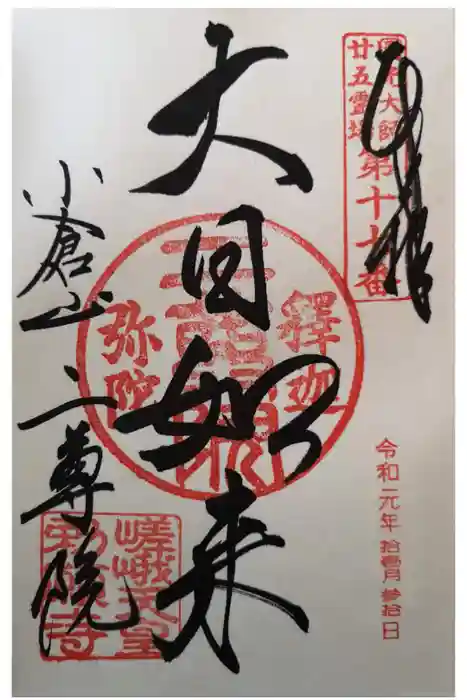 奉拝
圓光大師
廿五靈場
第十七番
大日如来
釋迦
弥陀
小倉山 二尊院
嵯峨天皇
勅願寺
令和元年 拾壹月 参拾日